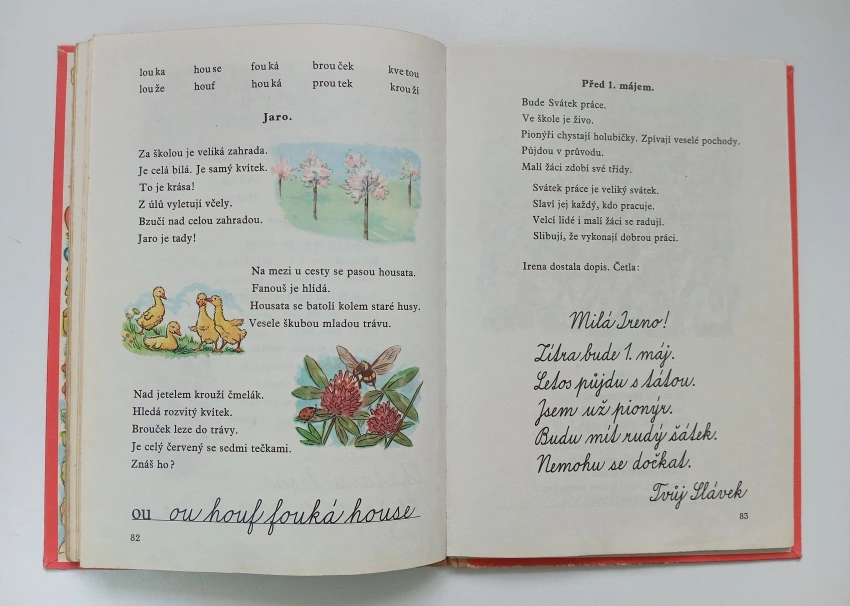 lou ka hou se fou ká brou ček kve tou
lou že houf hou ká prou tek krou ží
Jaro.
Za školou je veliká zahrada.
Je celá bílá. Je samý kvítek.
To je krása!
Z úlů vyletují včely.
Bzučí nad celou zahradou.
Jaro je tady!
Na mezi u cesty se pasou housata.
Fanouš je hlídá.
Housata se batolí kolem staré husy.
Vesele škubou mladou trávu.
Nad jetelem krouží čmelák.
Hledá rozvitý kvítek.
Brouček leze do trávy.
Je celý červený se sedmi tečkami.
Znáš ho?
ou ou houf fouká house
82
Před 1. májem.
Bude Svátek práce.
Ve škole je živo.
Pionýři chystají holubičky. Zpívají veselé pochody.
Půjdou v průvodu.
Malí žáci zdobí své třídy.
Svátek práce je veliký svátek.
Slaví jej každý, kdo pracuje.
Velcí lidé i malí žáci se radují.
Slibují, že vykonají dobrou práci.
Irena dostala dopis. Četla:
Milá Ireno!
Zítra bude 1. máj.
Letos půjdu s tátou.
Jsem už pionýr.
Budu mít rudý šátek.
Nemohu se dočkat.
Tvůj Slávek
83